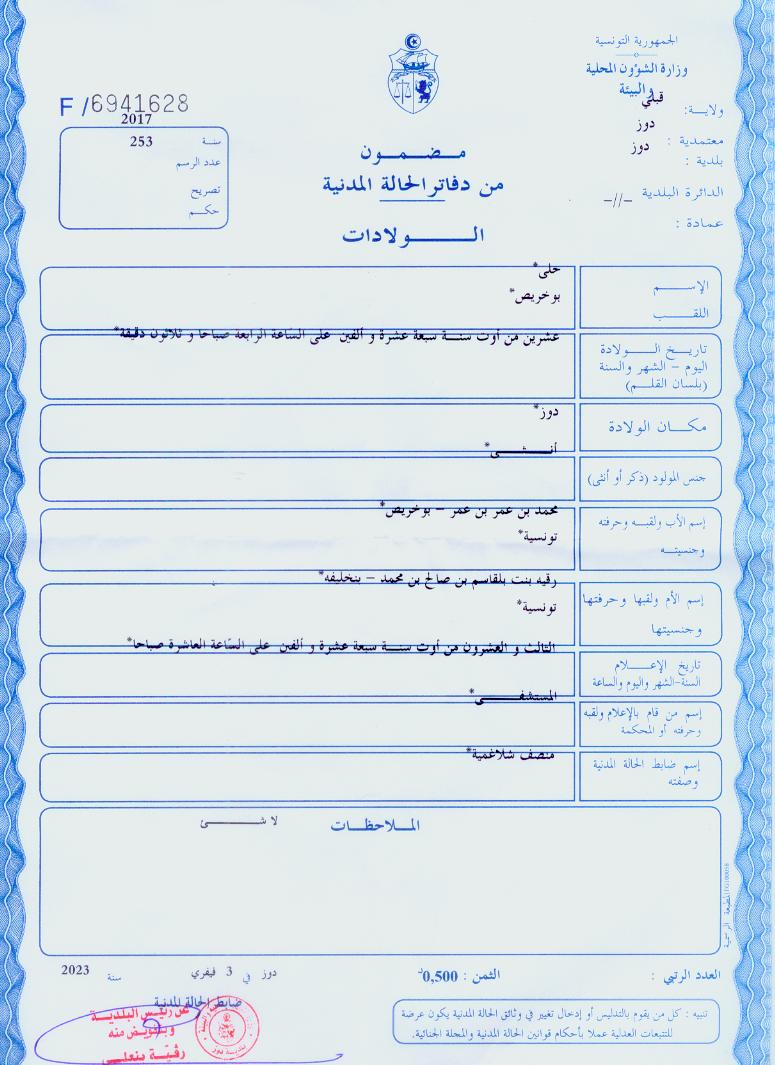 الجمهورية التونسية
وزارة الشؤون المحلية
والبيئة
ولاية: قبلي
معتمدية : دوز
بلدية : دوز
الدائرة البلدية -//-
عمادة :
F /6941628
سنة 2017
عدد الرسم 253
تصريح
حكم
مضمون
من دفاتر الحالة المدنية
الولادات
الإسم
حلى*
اللقب
بوخريص*
تاريخ الولادة
اليوم - الشهر والسنة
(بلسان القلم)
عشرين من أوت سنة سبعة عشرة و ألفين على الساعة الرابعة صباحا و ثلاثون دقيقة*
مكان الولادة
دوز*
جنس المولود (ذكر أو أنثى)
أنثى*
إسم الأب ولقبه وحرفته
وجنسيته
محمد بن عمر بن عمر - بوخريص*
تونسية*
إسم الأم ولقبها وحرفتها
وجنسيتها
رقيه بنت بلقاسم بن صالح بن محمد - بنخليفه*
تونسية*
تاريخ الإعلام
السنة-الشهر واليوم والساعة
الثالث و العشرون من أوت سنة سبعة عشرة و ألفين على الساعة العاشرة صباحا*
إسم من قام بالإعلام ولقبه
وحرفته أو المحكمة
المستشفى*
إسم ضابط الحالة المدنية
وصفته
منصف شلاغمية*
الملاحظات
لا شئ
المطبعة الرسمية
العدد الرتبي :
الثمن : 0,500د
دوز في 3 فيفري سنة 2023
ضابط الحالة المدنية
عن رئيس البلدية
وبتفويض منه
رقية بنعلي
تنبيه : كل من يقوم بالتدليس أو إدخال تغيير في وثائق الحالة المدنية يكون عرضة
للتتبعات العدلية عملا بأحكام قوانين الحالة المدنية والمجلة الجنائية.